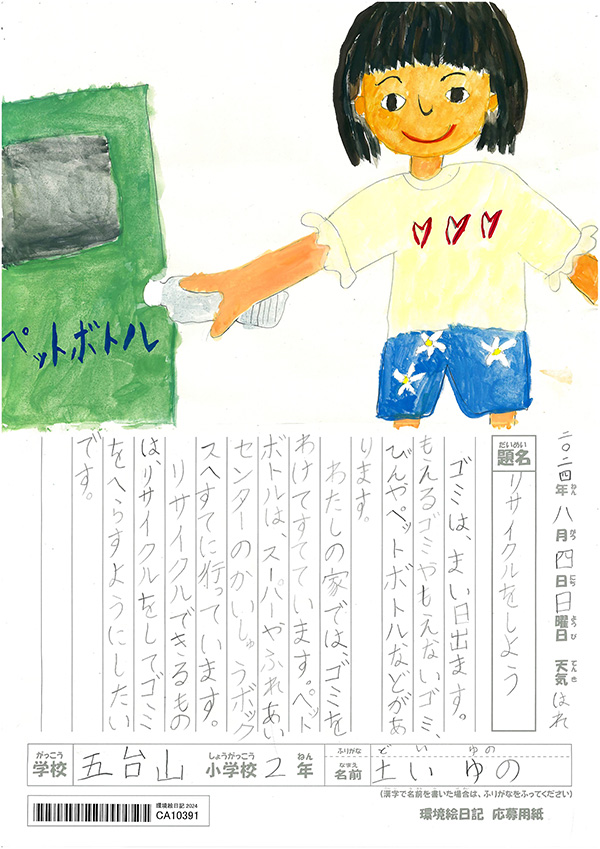 ペットボトル
二〇二四年八月四日日曜日 天気はれ
ねん がつ にち ようび てんき
だいめい
題名 リサイクルをしよう
ゴミは、まい日出ます。
もえるゴミやもえないゴミ、
びんやペットボトルなどがあ
ります。
わたしの家では、ゴミを
わけてすてています。ペット
ボトルは、スーパーやふれあい
センターのかいしゅうボック
スへすてに行っています。
リサイクルできるもの
は、リサイクルをしてゴミ
をへらすようにしたい
です。
がっこう しょうがっこう ねん ふりがな どい ゆの
学校 五台山 小学校 2年 なまえ 名前 土い ゆの
(漢字で名前を書いた場合は、ふりがなをふってください)
環境絵日記 2024
CA10391
環境絵日記 応募用紙